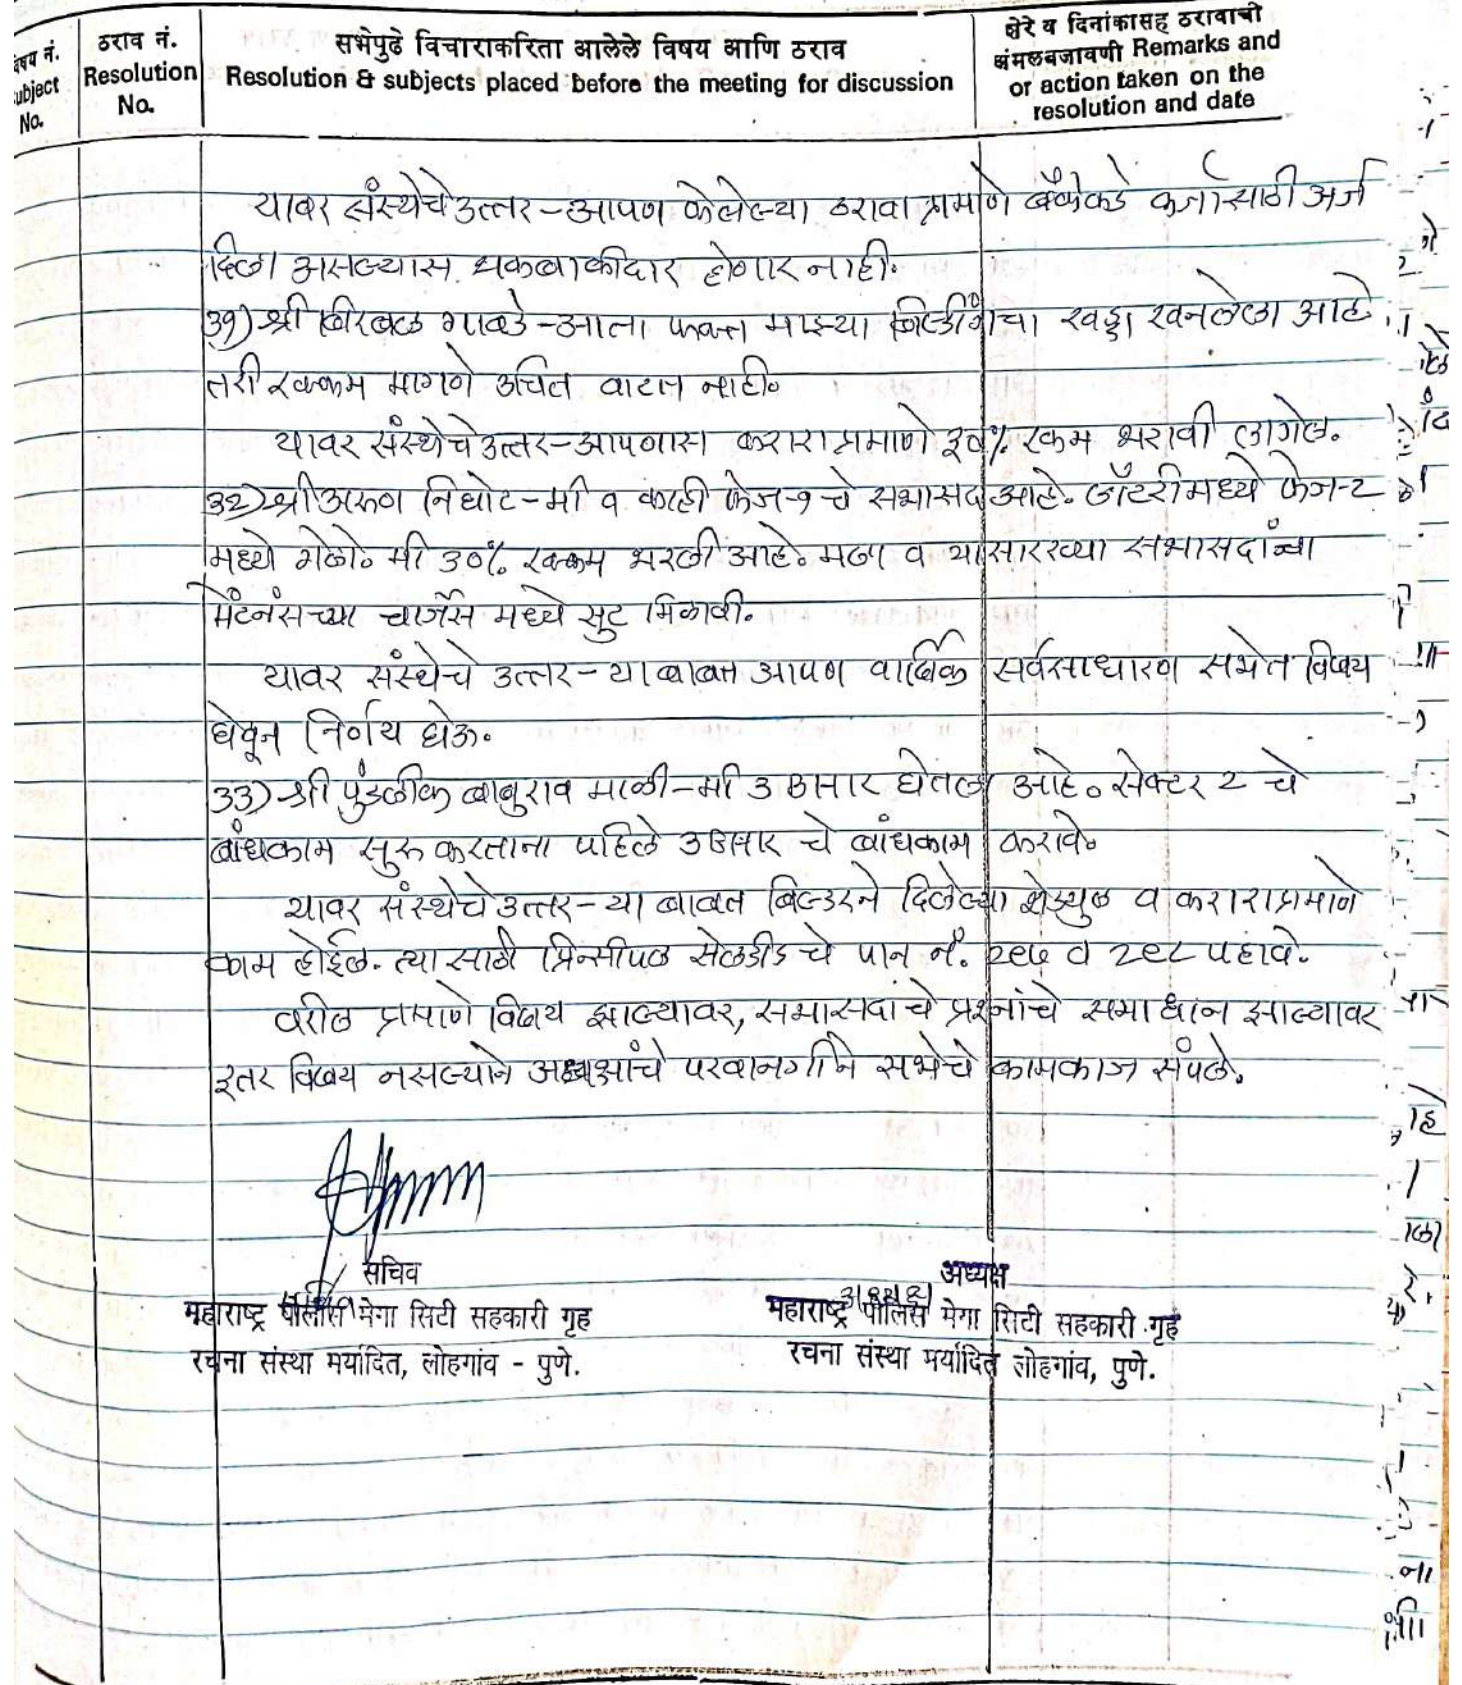 विषय नं. Subject No.
ठराव नं. Resolution No.
सभेपुढे विचाराकरिता आलेले विषय आणि ठराव
Resolution & subjects placed before the meeting for discussion
शेरे व दिनांकासह ठरावाची
अंमलबजावणी Remarks and
or action taken on the
resolution and date
यावर संस्थेचे उत्तर - आपण केलेल्या ठरावाप्रमाणे बँकेकडे कर्जासाठी अर्ज
दिला असल्यास थकबाकीदार होणार नाही.
३१) श्री बिरबल गावडे - आता फक्त माझ्या बिल्डींगचा खड्डा खनलेला आहे
तरी रक्कम मागणे उचित वाटत नाही.
यावर संस्थेचे उत्तर - आपणास कराराप्रमाणे ३०% रकम भरावी लागेल.
३२) श्री अरुण निघोट - मी व काही फेज-१ चे सभासद आहे. लॉटरीमध्ये फेज-२
मध्ये गेलो. मी ३०% रक्कम भरली आहे. मला व यासारख्या सभासदांच्या
मेंटनंसच्या चार्जेस मध्ये सुट मिळावी.
यावर संस्थेचे उत्तर - या बाबत आपण वार्षिक सर्वसाधारण सभेत विषय
घेवून निर्णय घेऊ.
३३) श्री पुंडलीक बाबुराव माळी - मी ३ आर घेतला आहे. सेक्टर २ चे
बांधकाम सुरु करताना पहिले ३ आर चे बांधकाम करावे.
यावर संस्थेचे उत्तर - या बाबत बिल्डरने दिलेल्या शेड्युल व कराराप्रमाणे
काम होईल. त्यासाठी प्रिन्सीपल सेलडीड चे पान नं. २९७ व २९८ पहावे.
वरील प्रमाणे विषय झाल्यावर, सभासदांचे प्रश्नांचे समाधान झाल्यावर
इतर विषय नसल्याने अध्यक्षांचे परवानगीने सभेचे कामकाज संपले.
सचिव
महाराष्ट्र पोलीस मेगा सिटी सहकारी गृह
रचना संस्था मर्यादित, लोहगांव - पुणे.
अध्यक्ष
महाराष्ट्र पोलिस मेगा सिटी सहकारी गृह
रचना संस्था मर्यादित लोहगांव, पुणे.